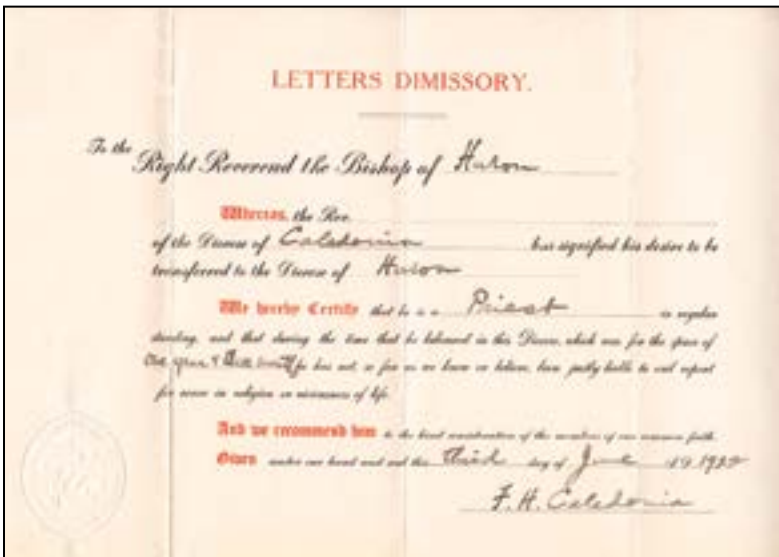 LETTERS DIMISSORY.
To the Right Reverend the Bishop of Huron
Whereas, the Rev.
of the Diocese of Caledonia has signified his desire to be
transferred to the Diocese of Huron
We hereby Certify that he is a Priest in regular
standing, and that during the time that he laboured in this Diocese, which was for the space of
One year & he has not, so far as we know or believe, been justly liable to evil report
for error in religion or viciousness of life.
And we recommend him to the kind consideration of the members of our common faith.
Given under our hand and seal this third day of June 19
F. H. Caledonia